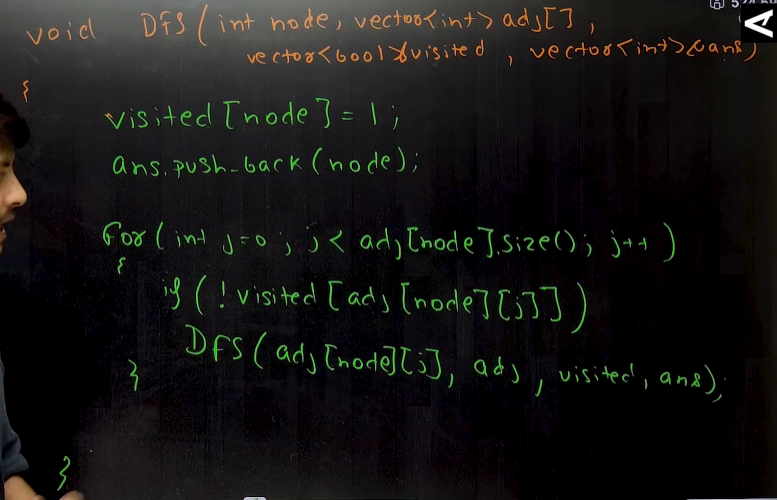 void DFS(int node, vector<int> adj[],
vector<bool>&visited, vector<int>&ans)
{
visited[node]=1;
ans.push_back(node);
for(int j=0; j< adj[node].size(); j++)
{
if(!visited[adj[node][j]])
DFS(adj[node][j], adj, visited, ans);
}
}